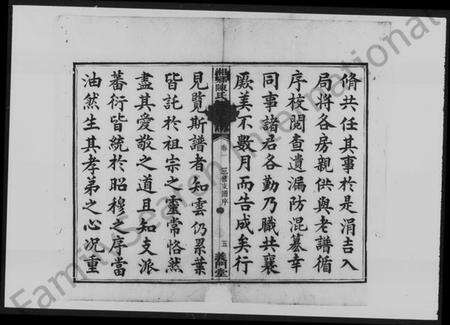 脩共任其事於是涓吉入
局將各房親供與老譜循
序校閱查遺漏防混纂幸
同事諸君各勤乃職共襄
厥美不數月而告成矣行
陳氏
五
義門堂
見覽斯譜者知雲仍累葉
皆託於祖宗之靈常恪然
盡其愛敬之道且知支派
蕃衍皆統於昭穆之序當
油然生其孝弟之心況重
Family Search International